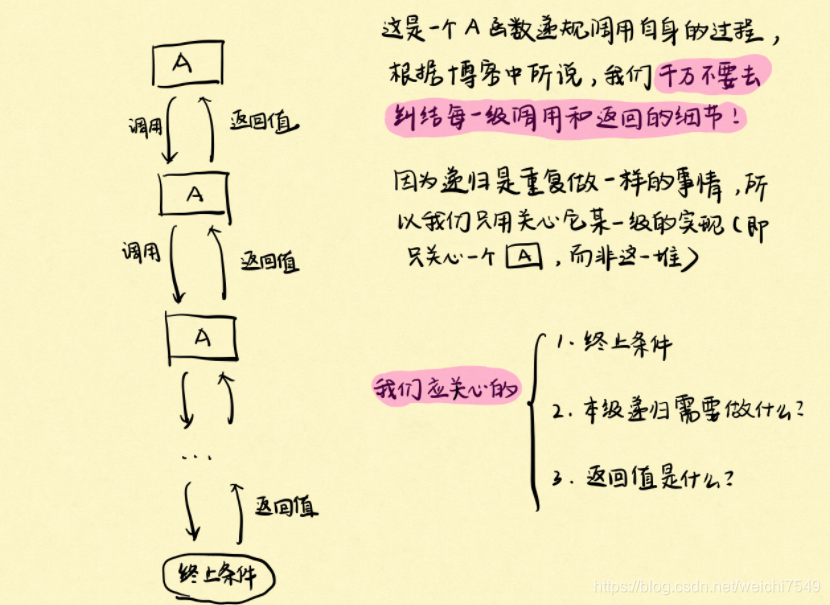 这是一个A函数递规调用自身的过程，
根据博客中所说，我们千万不要去
纠结每一级调用和返回的细节！
因为递归是重复做一样的事情，所
以我们只用关心它某一级的实现（即
只关心一个A，而非这一堆）
我们应关心的
1. 终止条件
2. 本级递归需要做什么？
3. 返回值是什么？
A
调用
返回值
A
调用
返回值
A
...
返回值
终止条件
https://blog.csdn.net/weichi7549